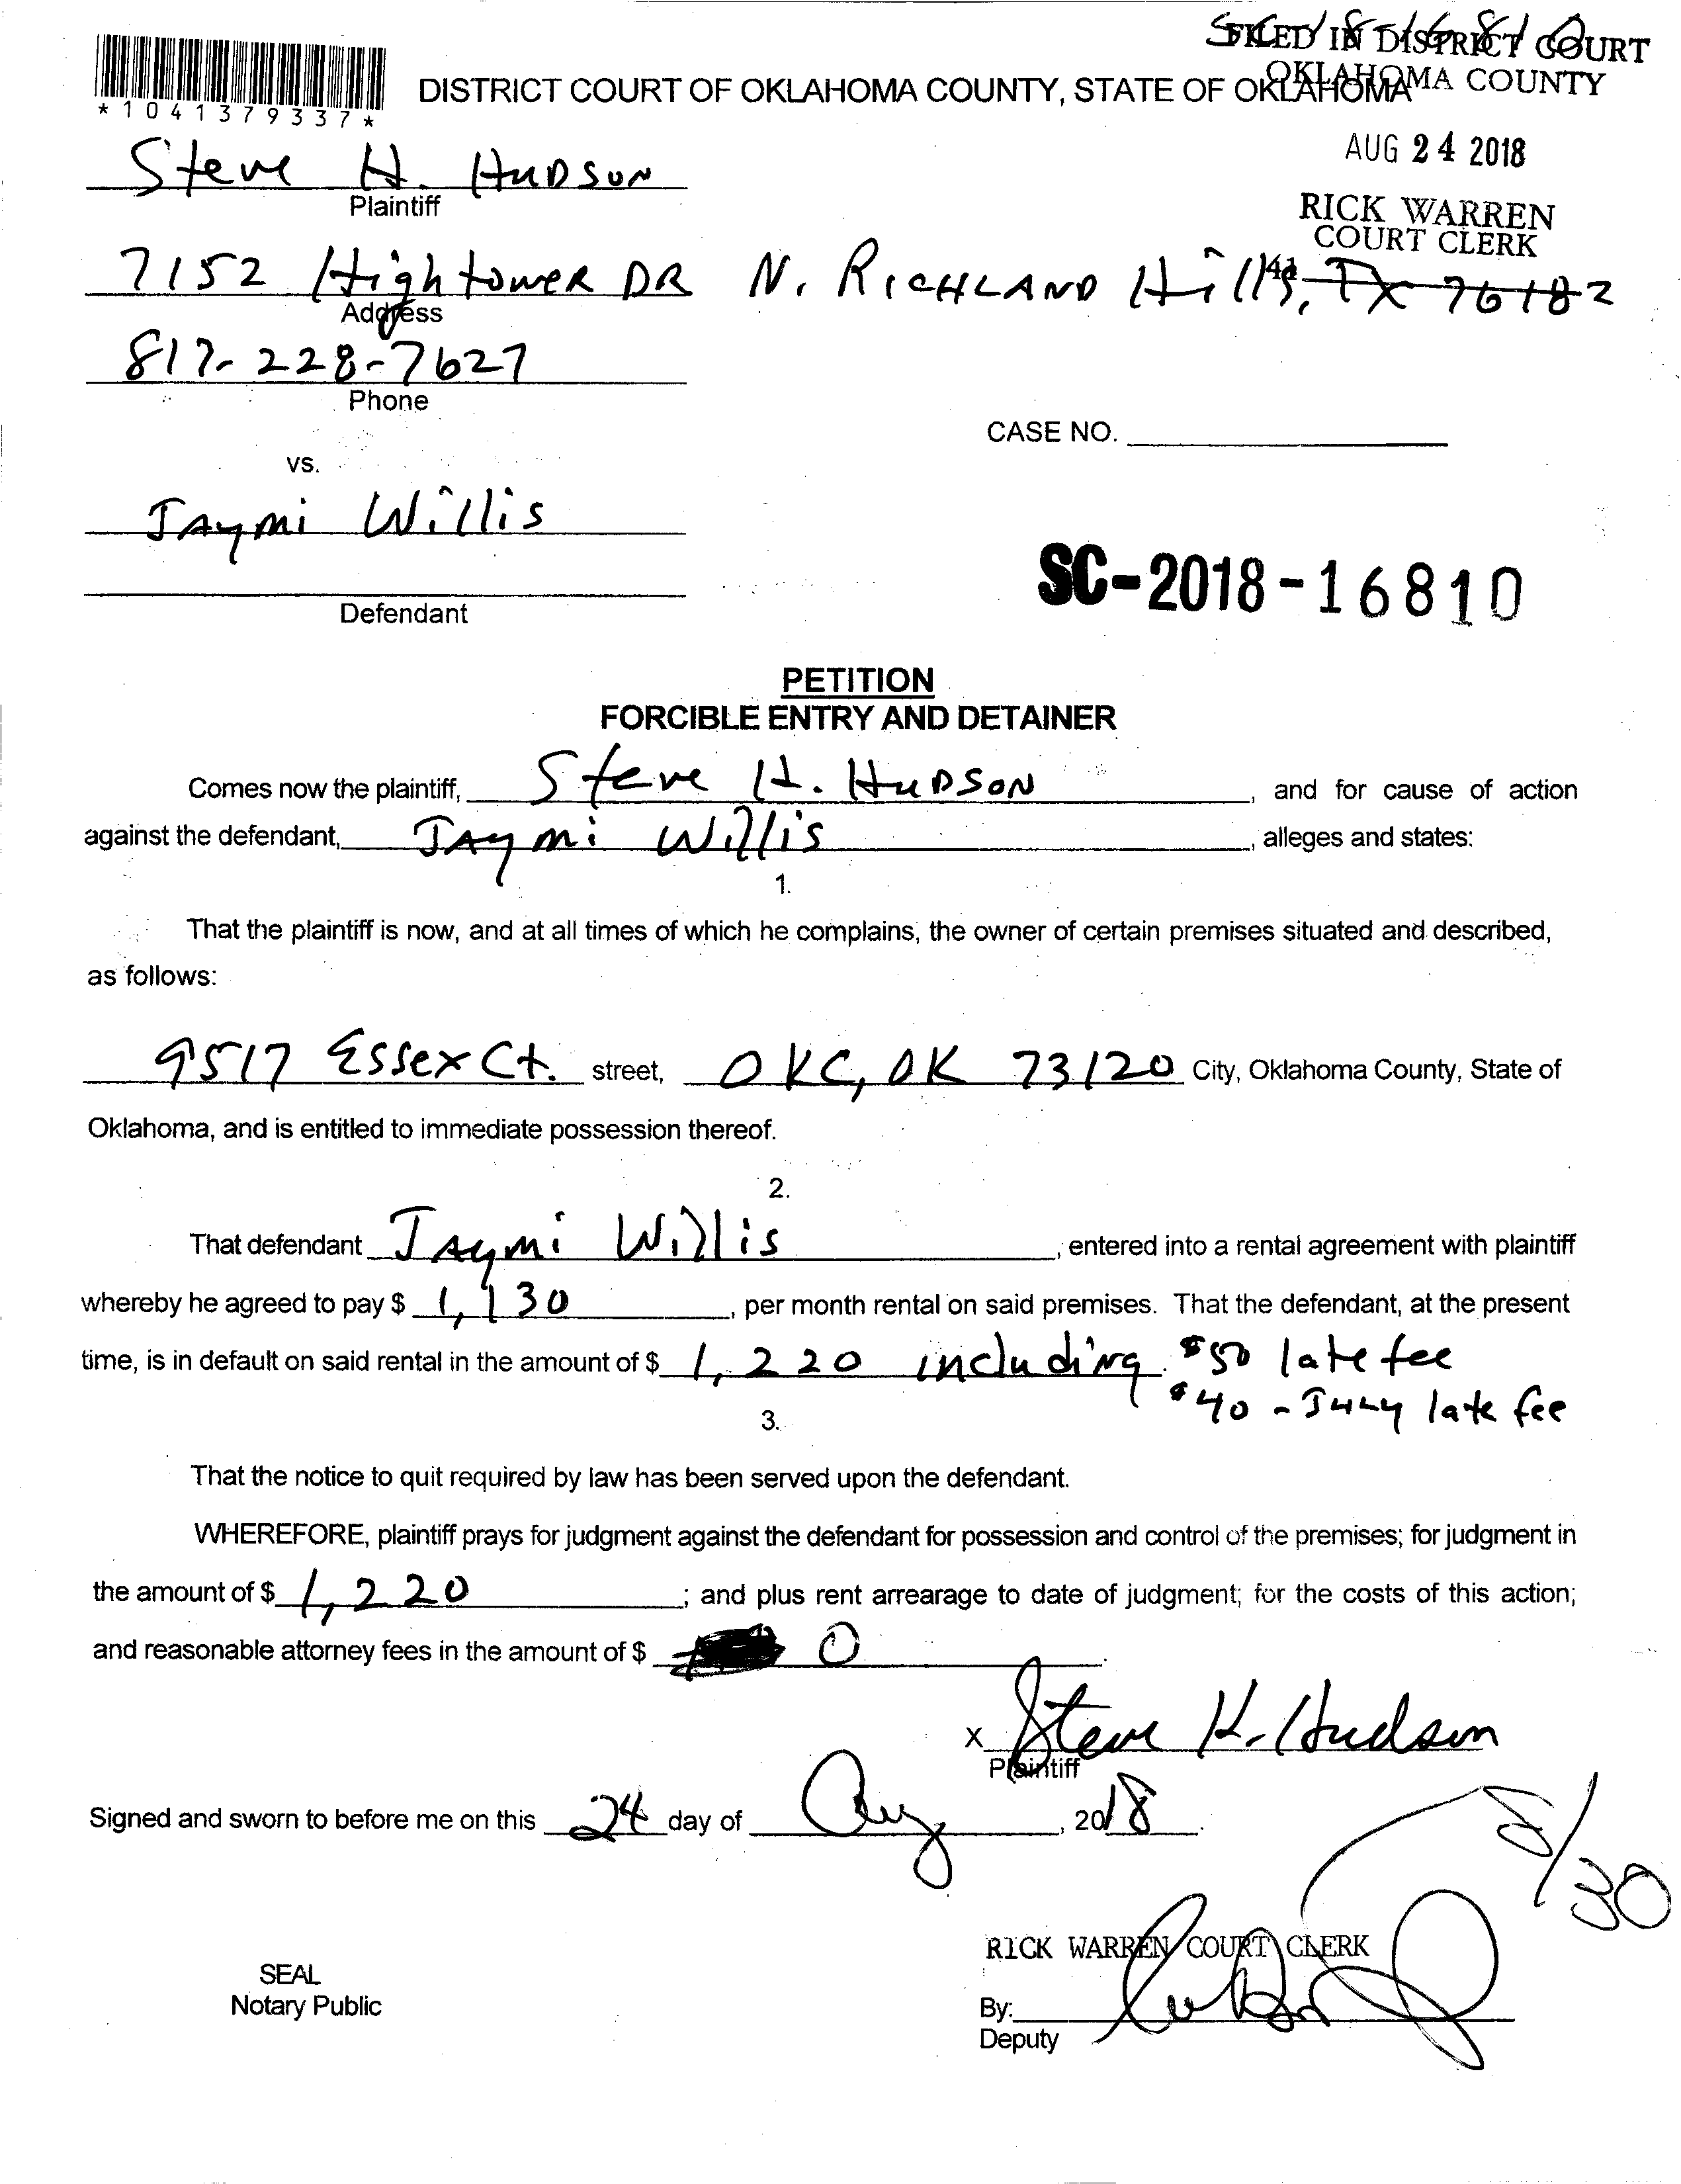 SC 18-16810
FILED IN DISTRICT COURT
OKLAHOMA COUNTY
*1041379337*
DISTRICT COURT OF OKLAHOMA COUNTY, STATE OF OKLAHOMA
AUG 24 2018
RICK WARREN
COURT CLERK
Steve H. HUDSON
Plaintiff
7152 Hightower DR N. RICHLAND Hills, TX 76182
Address
817-228-7627
Phone
CASE NO.
vs.
JAymi Willis
Defendant
SC-2018-16810
PETITION
FORCIBLE ENTRY AND DETAINER
Comes now the plaintiff, Steve H. HUDSON, and for cause of action
against the defendant, JAymi Willis, alleges and states:
1.
That the plaintiff is now, and at all times of which he complains, the owner of certain premises situated and described,
as follows:
9517 Essex Ct. street, OKC, OK 73120 City, Oklahoma County, State of
Oklahoma, and is entitled to immediate possession thereof.
2.
That defendant JAymi Willis, entered into a rental agreement with plaintiff
whereby he agreed to pay $ 1,130, per month rental on said premises. That the defendant, at the present
time, is in default on said rental in the amount of $ 1,220 including $50 late fee
$40 - JULY late fee
3.
That the notice to quit required by law has been served upon the defendant.
WHEREFORE, plaintiff prays for judgment against the defendant for possession and control of the premises; for judgment in
the amount of $ 1,220; and plus rent arrearage to date of judgment; for the costs of this action;
and reasonable attorney fees in the amount of $ 0.
X Steve H. Hudson
Plaintiff
Signed and sworn to before me on this 24 day of Aug, 2018.
8/30
RICK WARREN COURT CLERK
SEAL
Notary Public
By:
Deputy